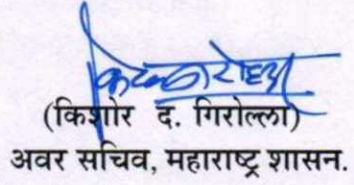 (किशोर द. गिरोल्ला)
अवर सचिव, महाराष्ट्र शासन.